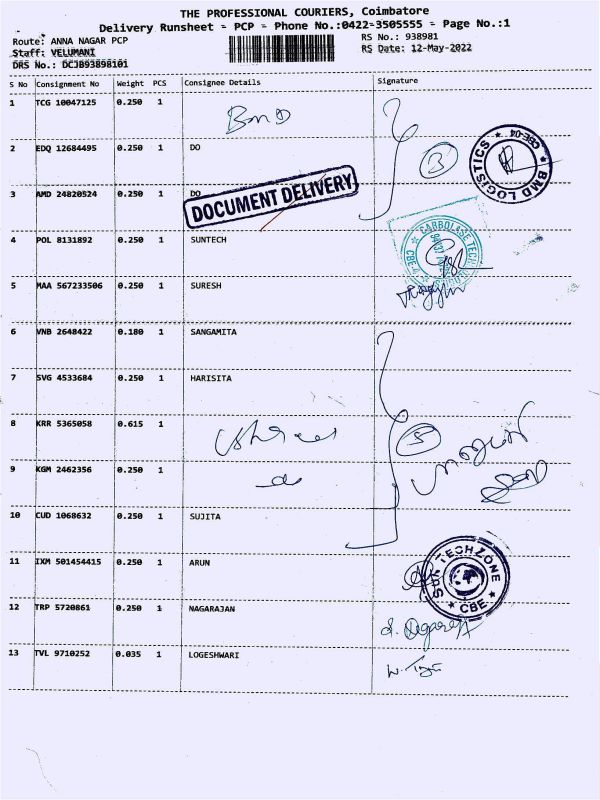 THE PROFESSIONAL COURIERS, Coimbatore
Delivery Runsheet - PCP - Phone No.:0422-3505555 - Page No.:1
Route: ANNA NAGAR PCP
RS No.: 938981
Staff: VELUMANI
RS Date: 12-May-2022
DRS No.: DCJB93898101
S No Consignment No Weight PCS Consignee Details Signature
1 TCG 10047125 0.250 1 BMD
2 EDQ 12684495 0.250 1 DO
3 AMD 24820524 0.250 1 DO
DOCUMENT DELIVERY
3
BMD LOGISTICS ★ CBE-04 ★
4 POL 8131892 0.250 1 SUNTECH
5 MAA 567233506 0.250 1 SURESH
6 VNB 2648422 0.180 1 SANGAMITA
7 SVG 4533684 0.250 1 HARISITA
8 KRR 5365058 0.615 1
5
9 KGM 2462356 0.250 1 do
10 CUD 1068632 0.250 1 SUJITA
11 IXM 501454415 0.250 1 ARUN
SUN TECHZONE ★ CBE ★
12 TRP 5720861 0.250 1 NAGARAJAN
13 TVL 9710252 0.035 1 LOGESHWARI